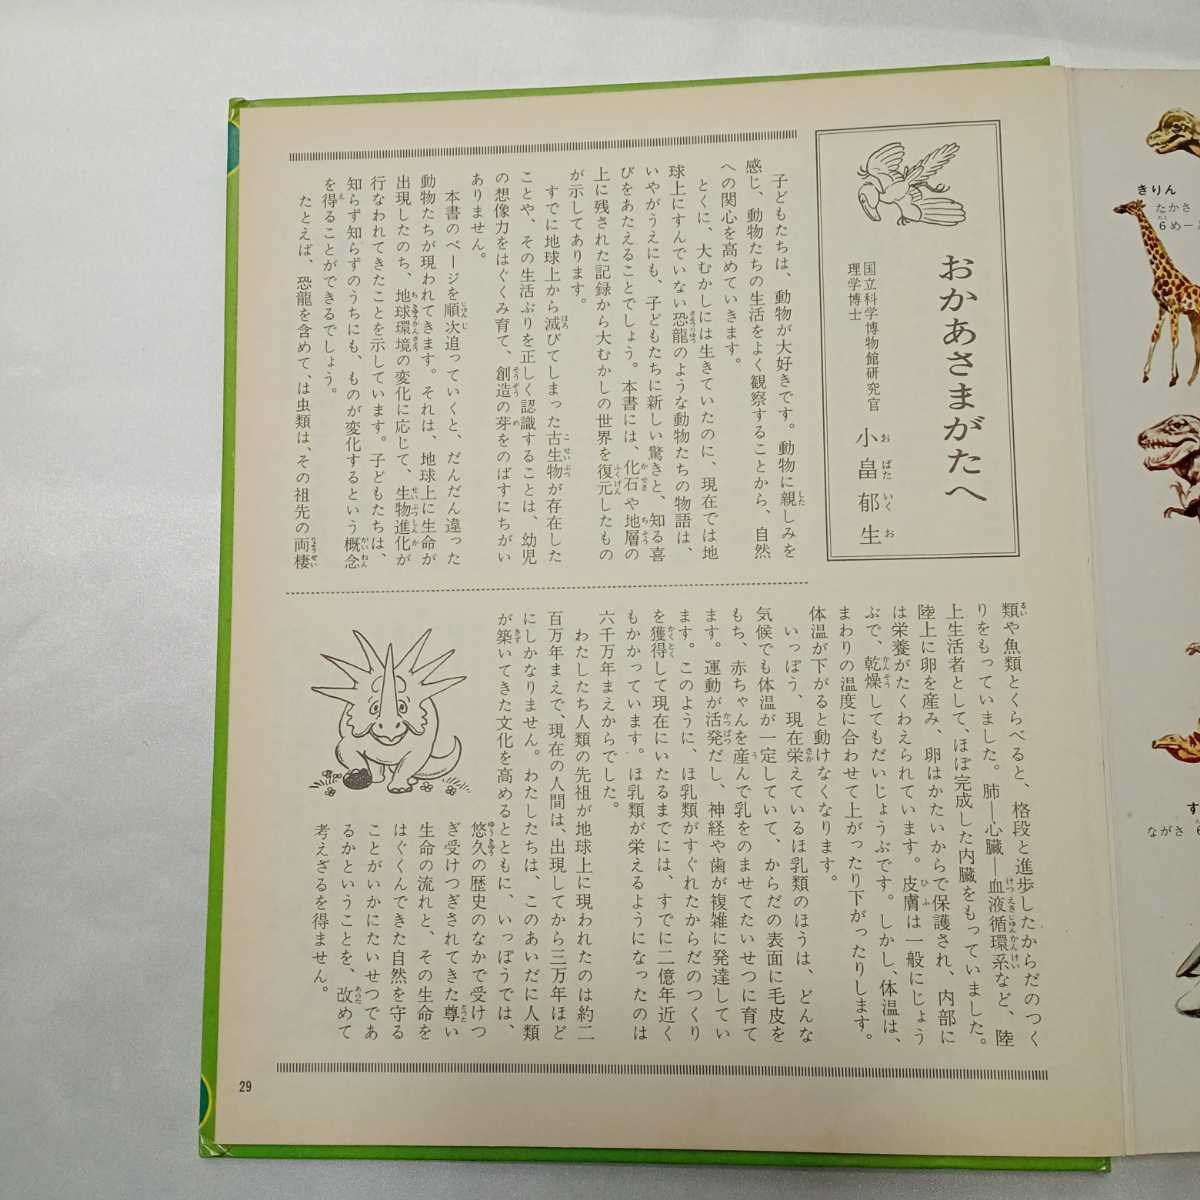 おかあさまがたへ
国立科学博物館研究官
理学博士
小畠郁生
おばたいくお
子どもたちは、動物が大好きです。動物に親しみを
感じ、動物たちの生活をよく観察することから、自然
への関心を高めていきます。
とくに、大むかしには生きていたのに、現在では地
球上にすんでいない恐龍のような動物たちの物語は、
いやがうえにも、子どもたちに新しい驚きと、知る喜
びをあたえることでしょう。本書には、化石や地層の
上に残された記録から大むかしの世界を復元したもの
が示してあります。
すでに地球上から滅びてしまった古生物が存在した
ことや、その生活ぶりを正しく認識することは、幼児
の想像力をはぐくみ育て、創造の芽をのばすにちがい
ありません。
本書のページを順次追っていくと、だんだん違った
動物たちが現われてきます。それは、地球上に生命が
出現したのち、地球環境の変化に応じて、生物進化が
行なわれてきたことを示しています。子どもたちは、
知らず知らずのうちにも、ものが変化するという概念
を得ることができるでしょう。
たとえば、恐龍を含めて、は虫類は、その祖先の両棲
類や魚類とくらべると、格段と進歩したからだのつく
りをもっていました。肺―心臓―血液循環系など、陸
上生活者として、ほぼ完成した内臓をもっていました。
陸上に卵を産み、卵はかたいからで保護され、内部に
は栄養がたくわえられています。皮膚は一般にじょう
ぶで、乾燥してもだいじょうぶです。しかし、体温は、
まわりの温度に合わせて上がったり下がったりします。
体温が下がると動けなくなります。
いっぽう、現在栄えているほ乳類のほうは、どんな
気候でも体温が一定していて、からだの表面に毛皮を
もち、赤ちゃんを産んで乳をのませてたいせつに育て
ます。運動が活発だし、神経や歯が複雑に発達してい
ます。このように、ほ乳類がすぐれたからだのつくり
を獲得して現在にいたるまでには、すでに二億年近く
もかかっています。ほ乳類が栄えるようになったのは
六千万年まえからでした。
わたしたち人類の先祖が地球上に現われたのは約二
百万年まえで、現在の人間は、出現してから三万年ほど
にしかなりません。わたしたちは、このあいだに人類
が築いてきた文化を高めるとともに、いっぽうでは、
悠久の歴史のなかで受けつ
ぎ受けつぎされてきた尊い
生命の流れと、その生命を
はぐくんできた自然を守る
ことがいかにたいせつであ
るかということを、改めて
考えざるを得ません。
29
きりん
たかさ
6めー
す
ながさ 6